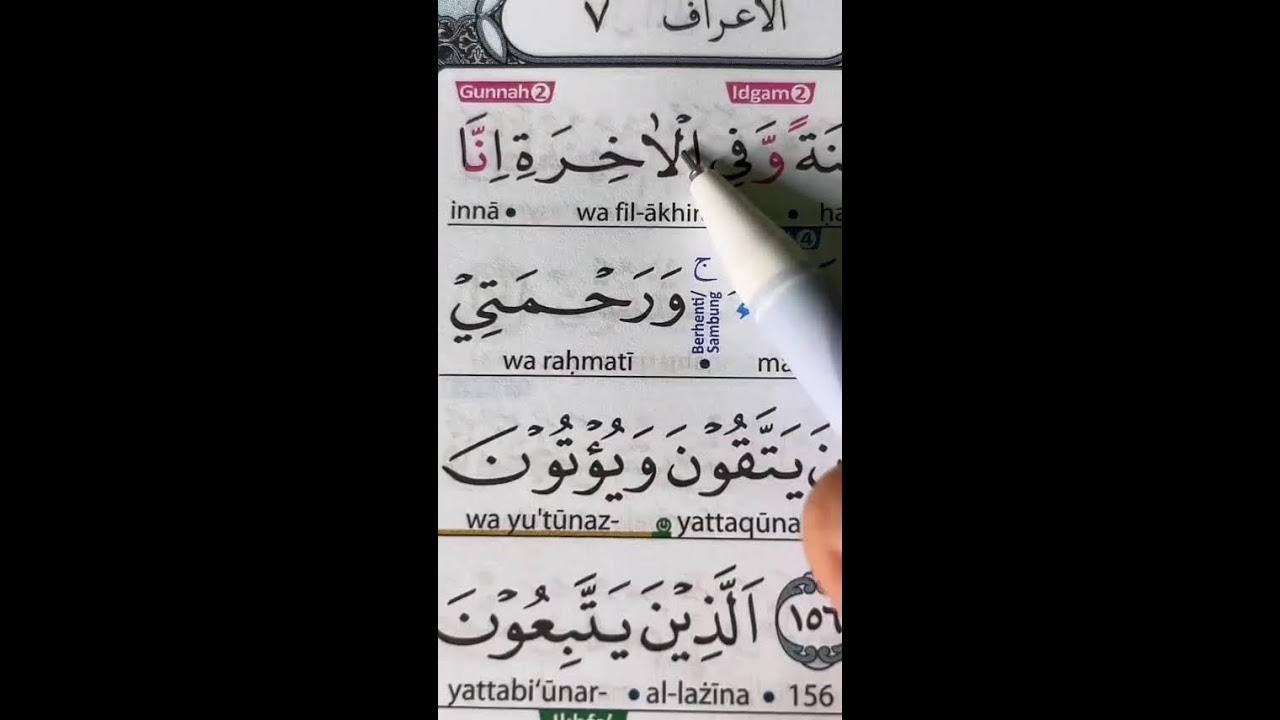 الأعراف ٧
Gunnah 2 Idgam 2
وَّفِى الْاٰخِرَةِ اِنَّا
innā • wa fil-ākhir •
4
وَرَحْمَتِيْ
ج
Berhenti/
Sambung
wa raḥmatī •
يَتَّقُوْنَ وَيُؤْتُوْنَ
wa yu'tūnaz- yattaqūna
١٥٦ اَلَّذِيْنَ يَتَّبِعُوْنَ
yattabi‘ūnar- • al-lażīna • 156